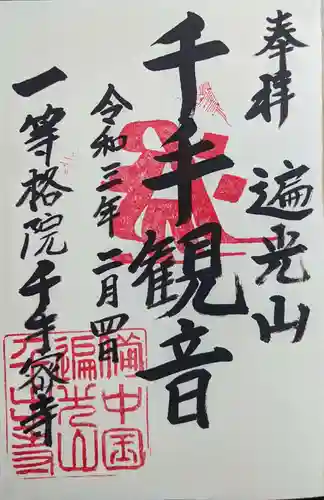 奉拝
遍光山
千手観音
令和三年二月四日
一等格院千手密寺
備中国
遍光山